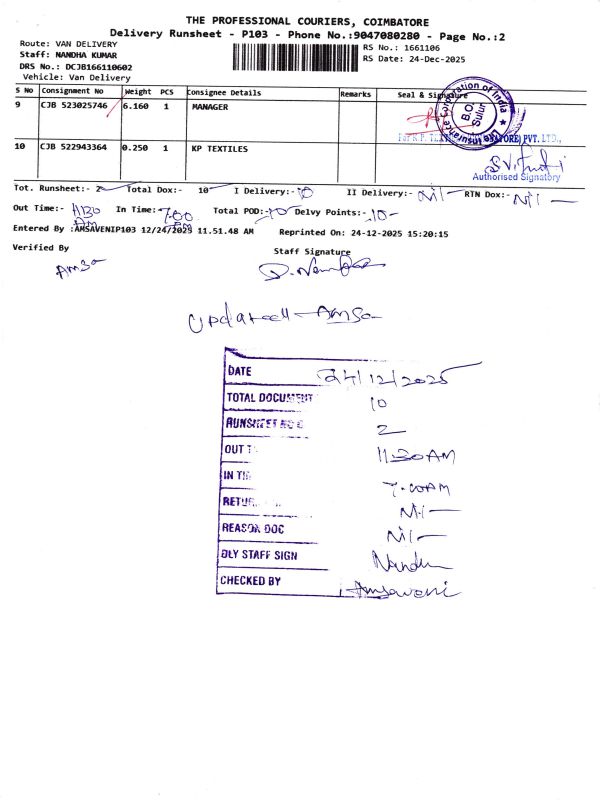 THE PROFESSIONAL COURIERS, COIMBATORE
Delivery Runsheet - P103 - Phone No.:9047080280 - Page No.:2
Route: VAN DELIVERY
Staff: NANDHA KUMAR
DRS No.: DCJB166110602
Vehicle: Van Delivery
RS No.: 1661106
RS Date: 24-Dec-2025
S No Consignment No Weight PCS Consignee Details Remarks Seal & Signature
9 CJB 523025746 6.160 1 MANAGER
Corporation of India
B.O.
Sulur
10 CJB 522943364 0.250 1 KP TEXTILES
PVT. LTD.,
Authorised Signatory
Tot. Runsheet:- 2 Total Dox:- 10 I Delivery:- 10 II Delivery:- Nil RTN Dox:- Nil
Out Time:- 11.30 AM In Time:- 7.00 Total POD:- 10 Delvy Points:- 10
Entered By :AMSAVENIP103 12/24/2025 11.51.48 AM Reprinted On: 24-12-2025 15:20:15
Verified By Staff Signature
Amsa
Updated - Amsa
DATE 24/12/2025
TOTAL DOCUMENT 10
RUNSHEET NO 2
OUT T 11.30 AM
IN TI 7.00
RETU Nil
REASON DOC Nil
DLY STAFF SIGN Nandha
CHECKED BY Amsaveni